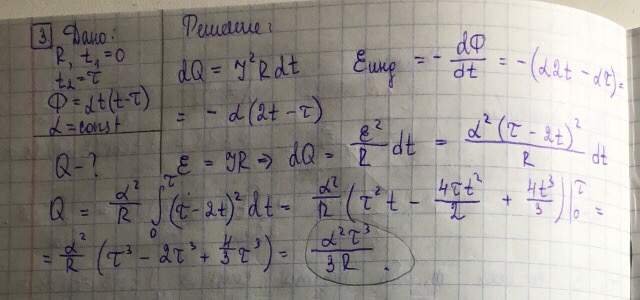 3 Дано:
R, t₁ = 0
t₂ = τ
Φ = αt(t-τ)
α = const
Q - ?
Решение:
dQ = J²Rdt    Eинд = - dΦ/dt = -(α2t - ατ) =
= - α(2t - τ)
ℰ = JR => dQ = ℰ²/R dt = α²(τ - 2t)²/R dt
Q = α²/R ∫₀^τ (τ - 2t)² dt = α²/R (τ²t - 4τt²/2 + 4t³/3)|₀^τ =
= α²/R (τ³ - 2τ³ + 4/3 τ³) = α²τ³/3R .